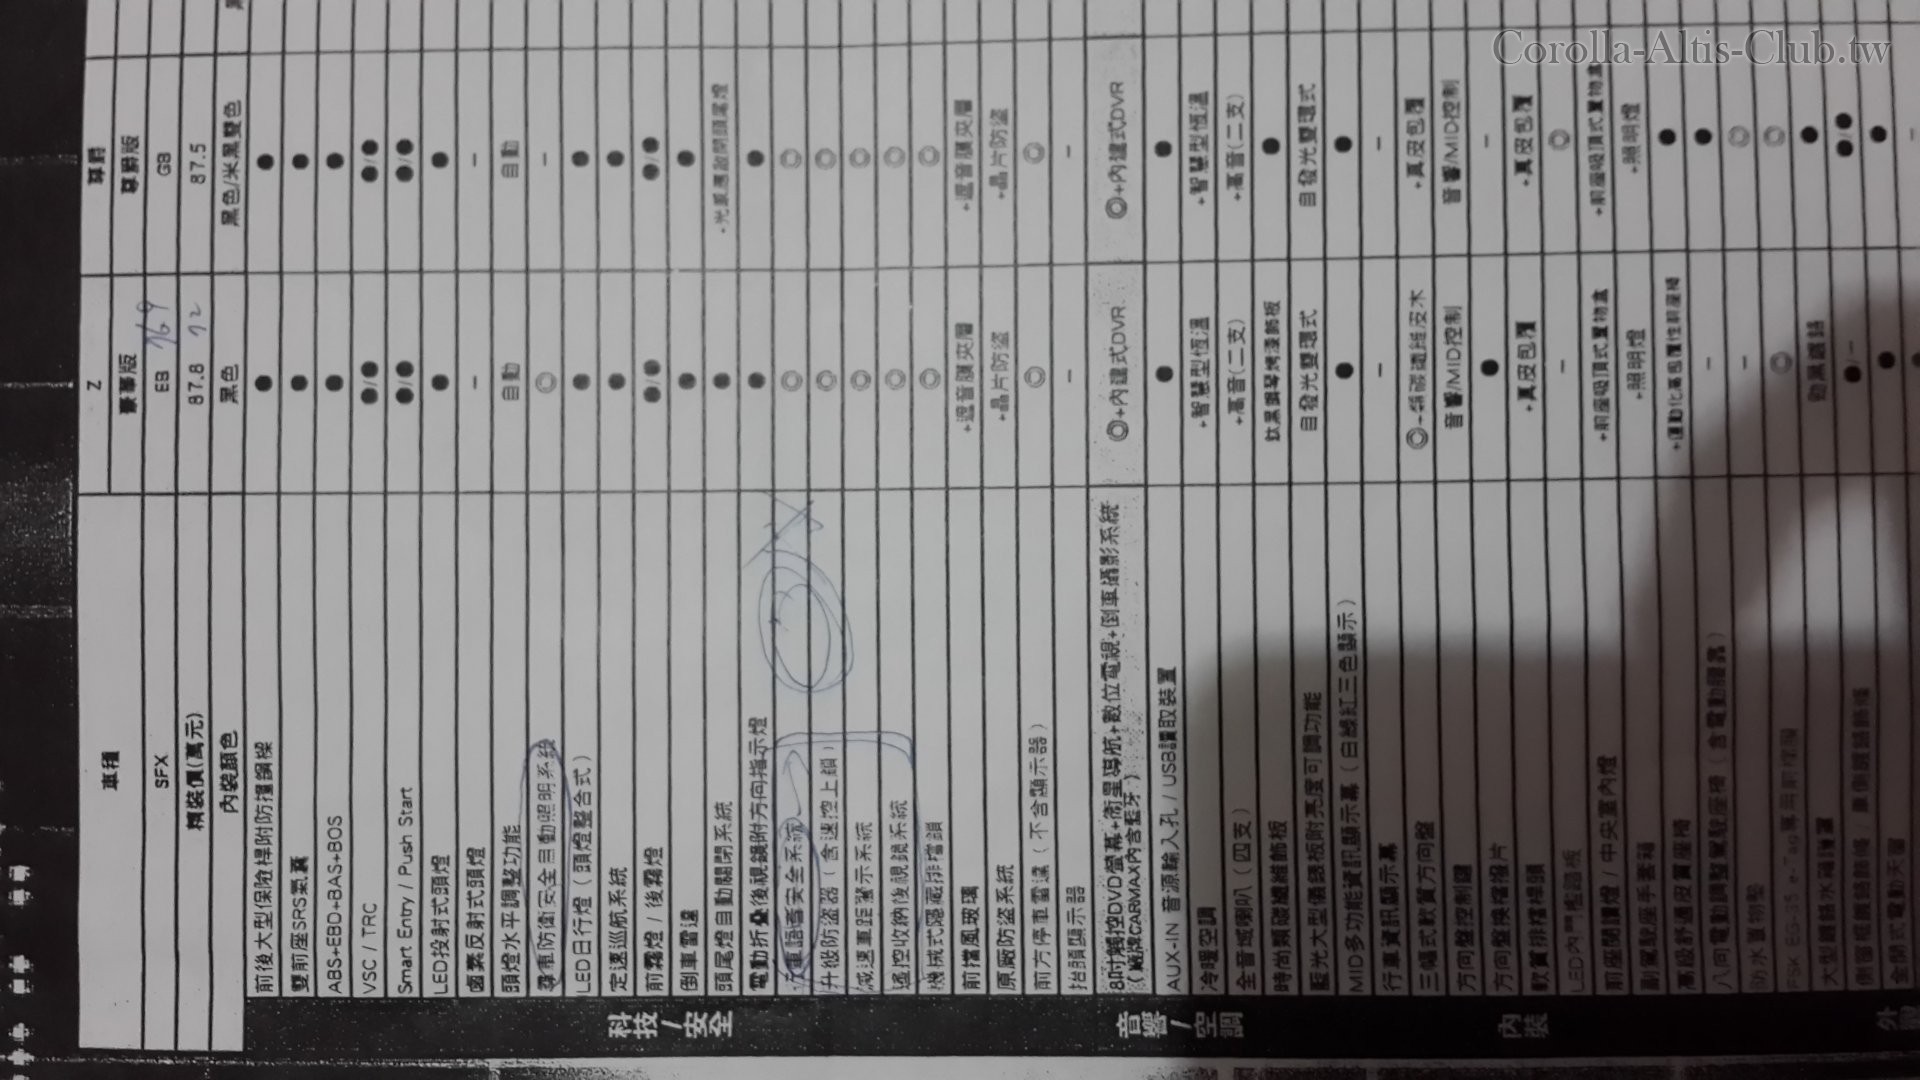 Corolla-Altis-Club.tw
車種 Z 尊爵
豪華版 尊爵版
SFX EB 769 GB
精裝價(萬元) 87.8 72 87.5
內裝顏色 黑色 黑色/米黑雙色
科技/安全
前後大型保險桿附防撞鋼樑 ● ●
雙前座SRS氣囊 ● ●
ABS+EBD+BAS+BOS ● ●
VSC / TRC ●/● ●/●
Smart Entry / Push Start ●/● ●/●
LED投射式頭燈 ● ●
鹵素反射式頭燈 – –
頭燈水平調整功能 自動 自動
尊車防衛安全自動照明系統 ◎ –
LED日行燈(頭燈整合式) ● ●
定速巡航系統 ● ●
前霧燈 / 後霧燈 ●/● ●/●
倒車雷達 ● ●
頭尾燈自動關閉系統 ● +光感應啟閉頭尾燈
電動折疊後視鏡附方向指示燈 ● ●
語音安全系統 ◎ ◎
升級防盜器(含速控上鎖) ◎ ◎
減速車距警示系統 ◎ ◎
遙控收納後視鏡系統 ◎ ◎
機械式隱藏排檔鎖 ◎ ◎
前擋風玻璃 +遮音膜夾層 +遮音膜夾層
原廠防盜系統 +晶片防盜 +晶片防盜
前方停車雷達(不含顯示器) ◎ ◎
抬頭顯示器 – –
音響/空調
8吋觸控DVD螢幕+衛星導航+數位電視+倒車攝影系統 ◎+內建式DVR ◎+內建式DVR
(廠牌CARMAX內含藍牙)
AUX-IN 音源輸入孔 / USB讀取裝置 ● ●
冷暖空調 +智慧型恆溫 +智慧型恆溫
全音域喇叭(四支) +高音(二支) +高音(二支)
內裝
時尚類碳纖維飾板 鈦黑鋼琴烤漆飾板 ●
藍光大型儀錶板附亮度可調功能 自發光雙環式 自發光雙環式
MID多功能資訊顯示幕(白綠紅三色顯示) ● ●
行車資訊顯示幕 – –
三幅式軟質方向盤 ◎+類碳纖維皮木 +真皮包覆
方向盤控制鍵 音響/MID控制 音響/MID控制
方向盤換檔撥片 ● –
軟質排檔桿頭 +真皮包覆 +真皮包覆
LED內門檻踏板 – ◎
前座閱讀燈 / 中央室內燈 +前座吸頂式置物盒 +前座吸頂式置物盒
副駕駛座手套箱 +照明燈 +照明燈
高級舒適房質座椅 +運動化高包覆性前座椅 ●
八向電動調整駕駛座椅(含電動腰靠) – ●
防水置物墊 – ◎
◎ ◎
大型鍍鉻水箱護罩 ●
●/– ●/●
● ●